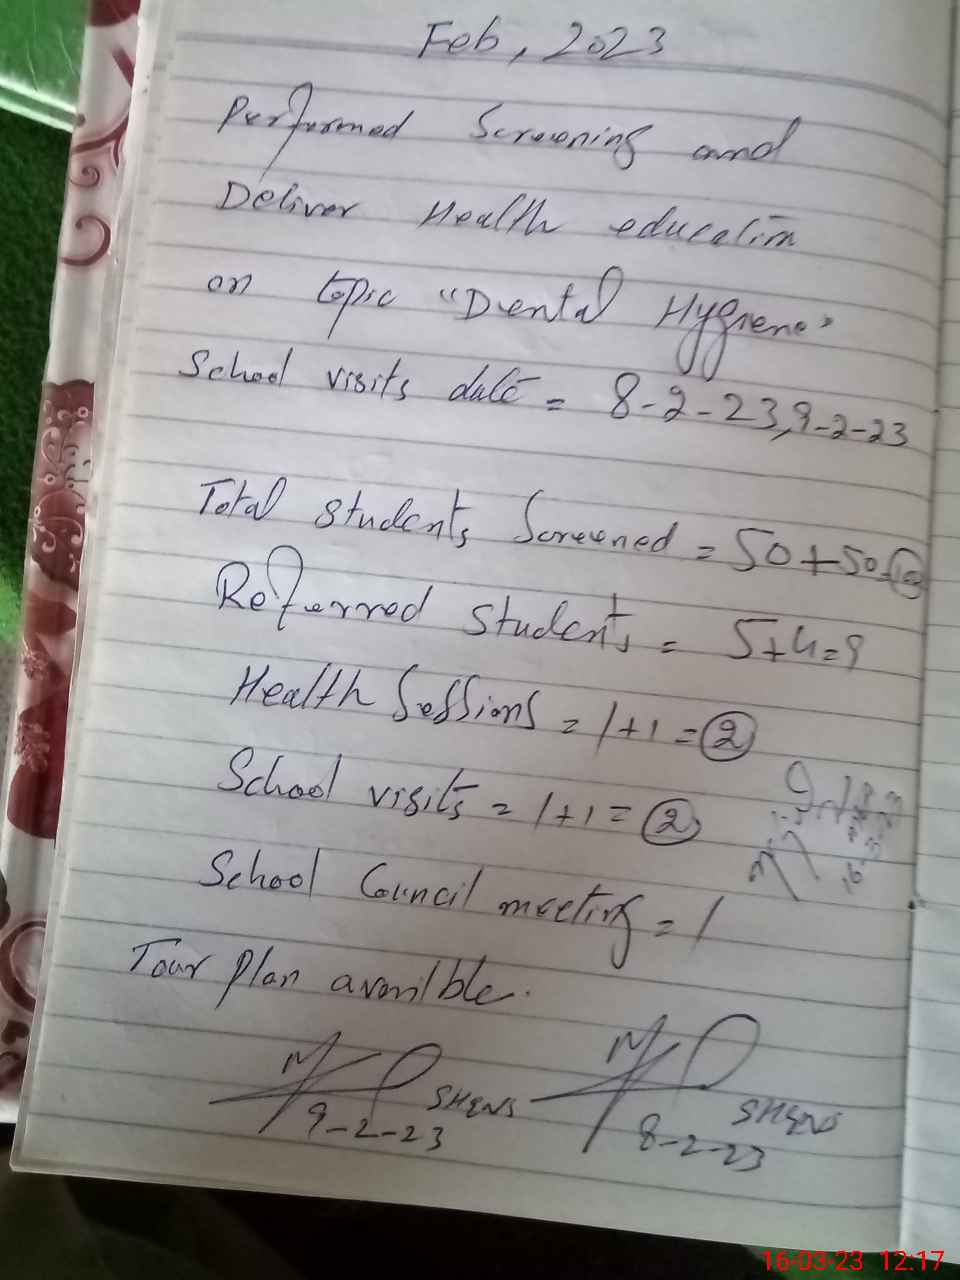 Feb, 2023
Performed Screening and
Deliver Health education
on topic "Dental Hygiene"
School visits date = 8-2-23, 9-2-23
Total students Screened = 50+50=100
Referred students = 5+4=9
Health Sessions = 1+1=2
School visits = 1+1=2
School Council meeting = 1
Tour Plan availble.
9-2-23
8-2-23
16-03-23 12:17